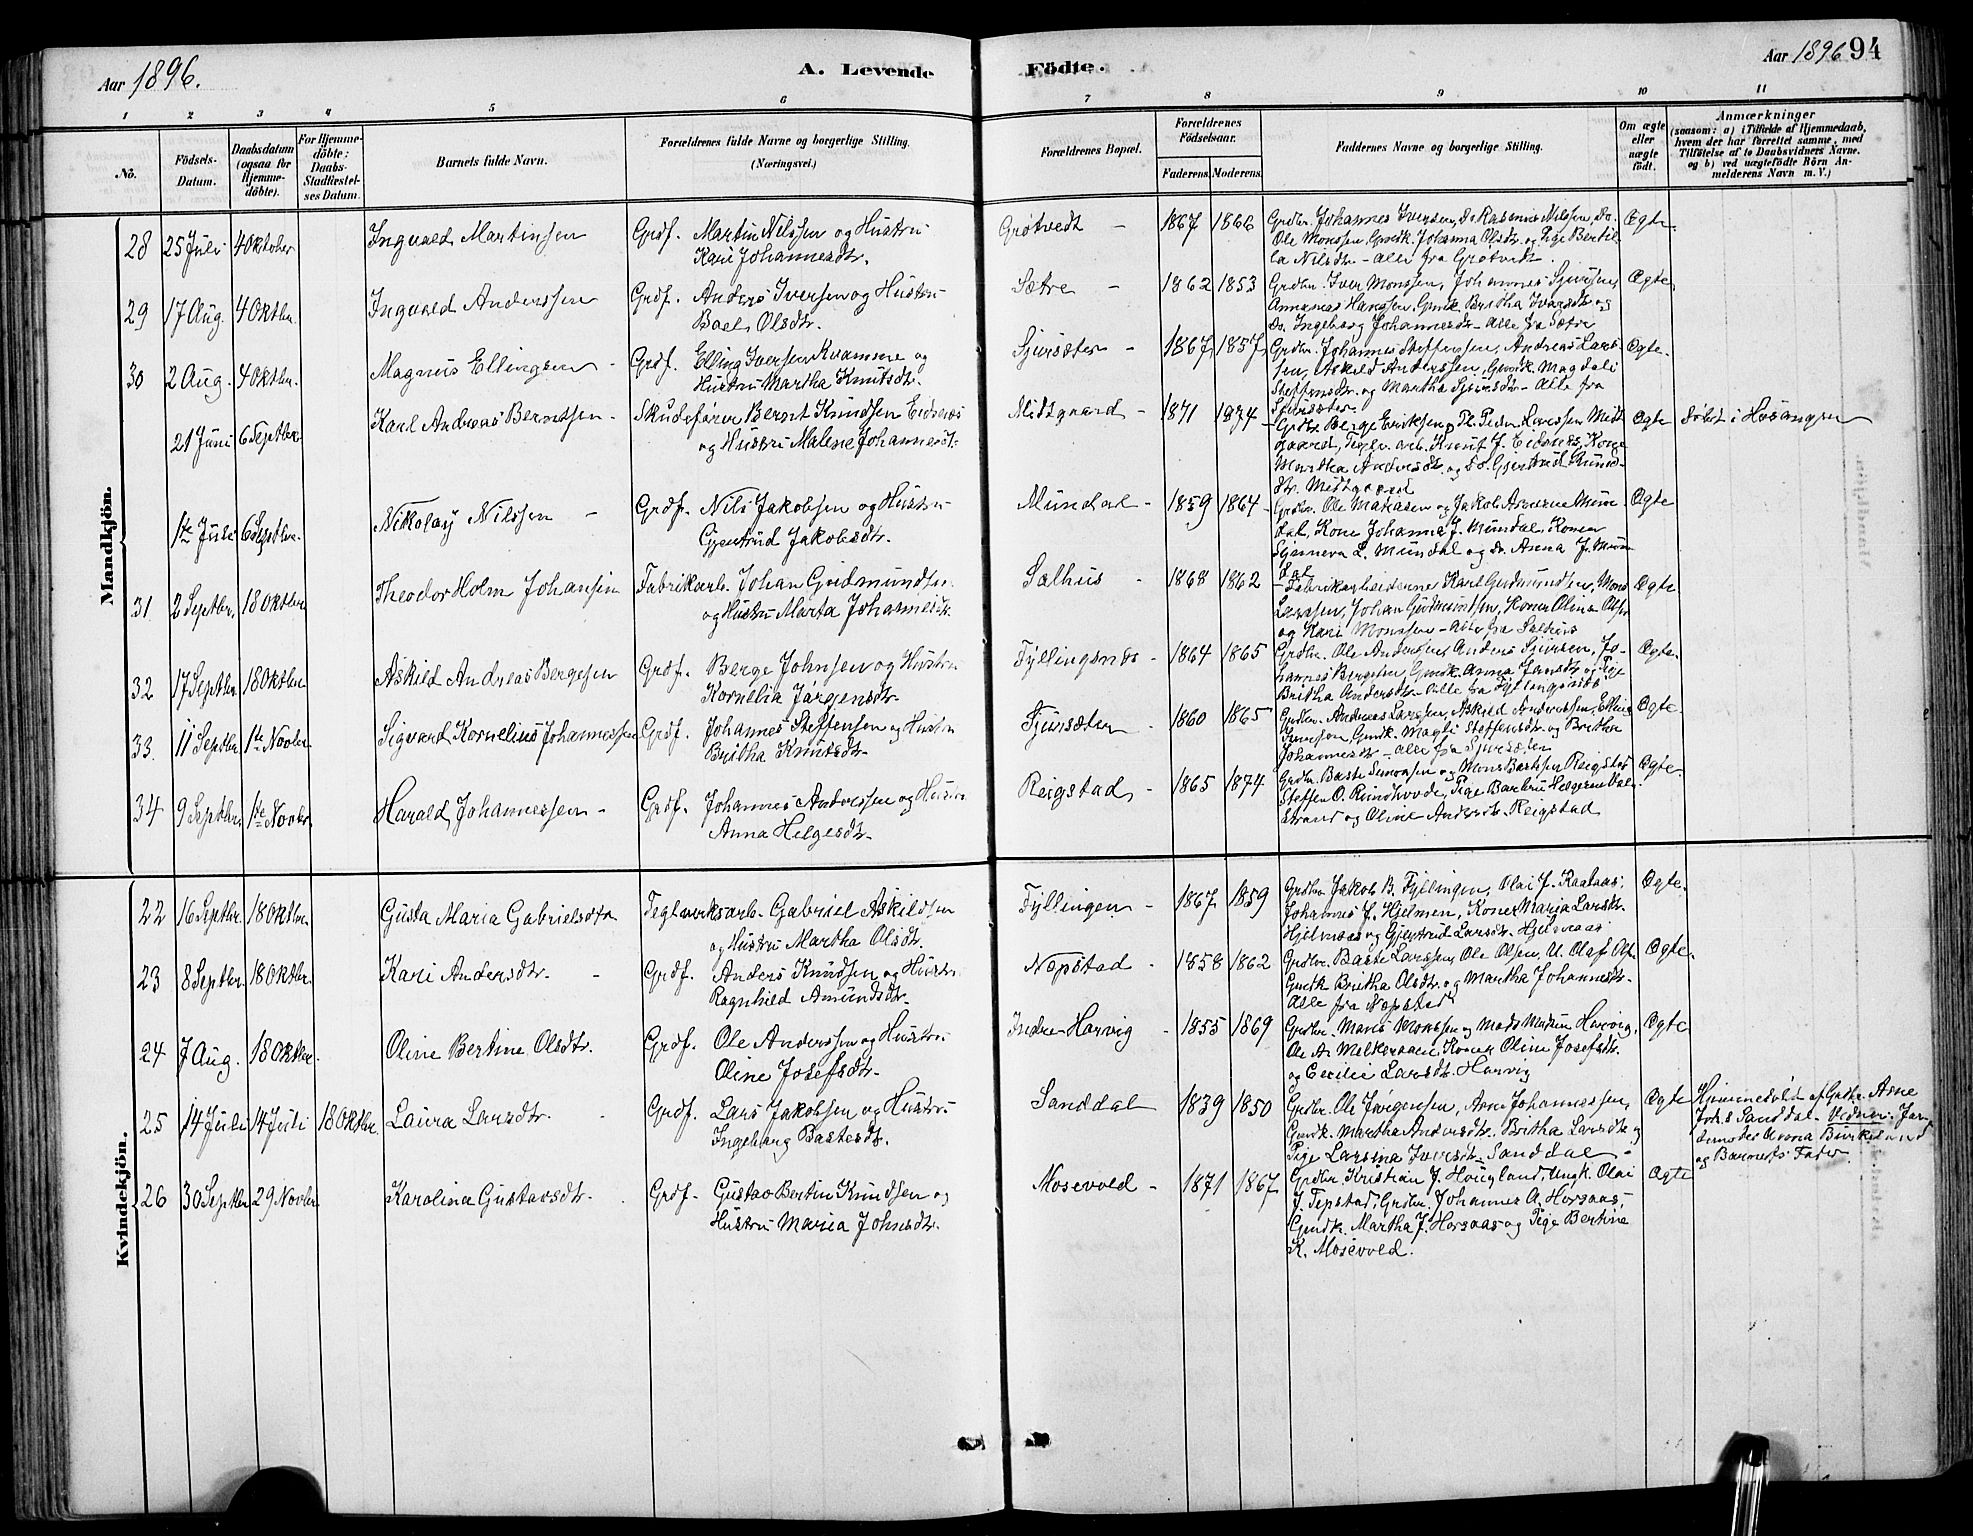 Aar 1896.
A. Levende
Födte.
Aar 1896 94
1 2 3 4 5 6 7 8 9 10 11
No.
Födsels-
Datum.
Daabsdatum
(ogsaa for
Hjemme-
döbte).
For Hjemme-
döbte:
Daabs-
Stadfæstel-
ses Datum.
Barnets fulde Navn.
Forældrenes fulde Navne og borgerlige Stilling.
(Næringsvei.)
Forældrenes Bopæl.
Forældrenes
Födselsaar.
Faderens. Moderens.
Faddernes Navne og borgerlige Stilling.
Om ægte
eller
uægte
födt.
Anmærkninger
(saasom: a) i Tilfælde af Hjemmedaab,
hvem der har forrettet samme, med
Tilföielse af to Daabsvidners Navne.
og b) ved uægtefödte Börn An-
melderens Navn m. V.)
Mandkjön.
28 25 Juli 4 Oktober Ingvald Martinsen Grdf. Martin Nilssen og Hustru
Kari Johannesdtr.
Grøtvedt - 1867 1866 Grdbr. Johannes Iversen, Do Rasmus Nilssen, Do.
Ole Monssen, Gmdk. Johanna Olsdtr. og Pige Bertil-
la Nilsdtr - alle fra Grøtvedt.
Ægte
29 17 Aug. 4 Oktbr. Ingvald Anderssen Grdf. Anders Iversen og Hustru
Boel Olsdtr.
Sætre - 1862 1853 Grdbr. Iver Monssen, Johannes Sjursen,
Hanssen, Gmdk. Britha Iversdtr og
Do. Ingeborg Johannesdtr - alle fra Sætre
Ægte
30 2 Aug. 4 Oktbr. Magnus Ellingsen - Grdf. Elling Iversen Kvamme og
Hustru Martha Knutsdtr.
Sjursæter - 1867 1857 Grdbr. Johannes Steffensen, Andreas Lars-
sen, Askild Anderssen, Gmdk. Magdali
Steffensdtr. og Martha Sjursdtr - alle fra
Sjursæter.
Ægte
21 Juni 6 Septbr. Karl Andreas Berntsen - Skudefører Bernt Knudsen Eidsnes
og Hustru Malene Johannesdt.
Midtgaard - 1871 1874 - Grdbr. Berge Eriksen, Peder Larssen Midt
gaard, Teglv. arb. Knut J. Eidsnes, Kone
Martha Andersdtr. og Do. Gjertrud Knuds-
dtr. Midtgaard
Ægte Døbt i Hosanger
1te Juli 6 Septbr. Nikolay Nilssen - Grdf. Nils Jakobsen og Hustru
Gjertrud Jakobsdtr.
Mundal - 1859 1864 - Grdbr. Ole Matiasen og Jakob Asheim Mun
dal, Kone Johanna J. Mundal, Konen
Synneva L. Mundal og do. Anna J. Mun
dal
Ægte
31 2 Septbr. 18 Oktbr Theodor Holm Johansen Fabrikarb. Johan Gudmundsen
og Hustru Marta Johannesdtr.
Salhus - 1868 1862 - Fabrikarbeiderne Karl Gudmundsen, Mons
Larssen, Johan Gudmundsen, Koner Olina Olsdtr
og Kari Monssen - alle fra Salhus
Ægte
32 17 Septbr. 18 Oktbr Askild Andreas Bergesen Grdf. Berge Johnsen og Hustru
Kornelia Jørgensdtr.
Fyllingsnæs - 1864 1865 Grdbr. Ole Andersen, Anders Sjursen, Jo-
hannes Bergesen, Gmdk. Anna Jansdtr. og Pige
Britha Andersdtr - alle fra Fyllingsnæs
Ægte
33. 11 Septbr. 1te Novbr. Sigvard Kornelius Johannessen Grdf. Johannes Steffensen og Hustru
Britha Knutsdtr.
Sjursæter - 1860 1865 Grdbr. Andreas Larssen, Askild Anderssen, Elling
Iversen, Gmdk. Magli Steffensdtr. og Britha
Johannesdtr - alle fra Sjursæter
Ægte
34 9 Septbr. 1te Novbr. Harald Johannessen - Grdf. Johannes Anderssen og Hustru
Anna Helgesdtr.
Reigstad - 1865 1874 Grdbr. Baste Simonsen og Mons Bastesen Reigstad
Steffen O. Rundhovde, Pige Barbru Helgesen
Strand og Oline Andersdtr Reigstad
Ægte
Kvindekjön.
22 16 Septbr. 18 Oktbr. Gusta Maria Gabrielsdtr Teglverksarb. Gabriel Askildsen
og Hustru Martha Olsdtr.
Fyllingen - 1867 1859 Grdbr. Jakob B. Fyllingen, Olai J. Raataas,
Johannes J. Hjelmen, Kone Maria Larsdtr.
Hjelmaas og Gjertrud Larsdtr. Hjelmaas
Ægte
23 8 Septbr. 18 Oktbr. Kari Andersdtr. - Grdf. Anders Knudsen og Hustru
Ragnhild Amundsdtr.
Nepstad - 1858 1862 Grdbr. Baste Larssen, Ole Olsen, U. Olaf Ols.
Gmdk Britha Olsdtr. og Martha Johannesdtr.
Alle fra Nepstad
Ægte
24 7 Aug. 18 Oktbr. Oline Bertine Olsdtr. Grdf. Ole Anderssen og Hustru
Oline Josefsdtr.
Indre Horvig - 1855 1869 Grdbr. Mons Monssen og Mads Madsen Horvig,
Ole A. Kone Oline Josefsdtr.
og Cecilie Larsdtr. Horvig
Ægte
25 14 Juli 14 Juli 18 Oktbr. Laura Larsdtr. - Grdf. Lars Jakobsen og Hustru
Ingeborg Bastesdtr.
Sanddal 1839 1850 Grdbr. Ole Jørgensen, Arne Johannessen,
Gmdk. Martha Andersdtr. Britha Larsdtr og
Pige Larsina Iversdtr. Sanddal -
Ægte Hjemmedøbt af Grdbr. Arne
Johs Sanddal. Vidner: Jor-
demoder Anna Birkeland
og Barnets Fader.
26 30 Septbr 29 Novbr. Karolina Gustavsdtr. Grdf. Gustav Bertin Knudsen og
Hustru Maria Johnsdtr.
Mosevold - 1871 1867 Grdbr. Kristian J. Hougland, Ungk. Olai
J. Tepstad, Grdbr. Johannes A. Horsaas,
Gmdk. Martha J. Horsaas og Pige Bertine
K. Mosevold.
Ægte